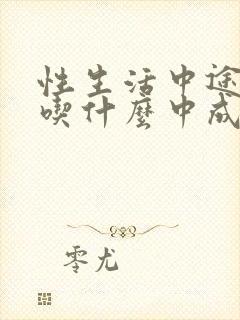 性生活中途
喫什麼中成
零尤